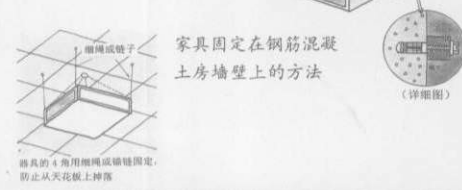 细绳或链子
家具固定在钢筋混凝
土房墙壁上的方法
（详细图）
器具的4角用细绳或锁链固定，
防止从天花板上掉落